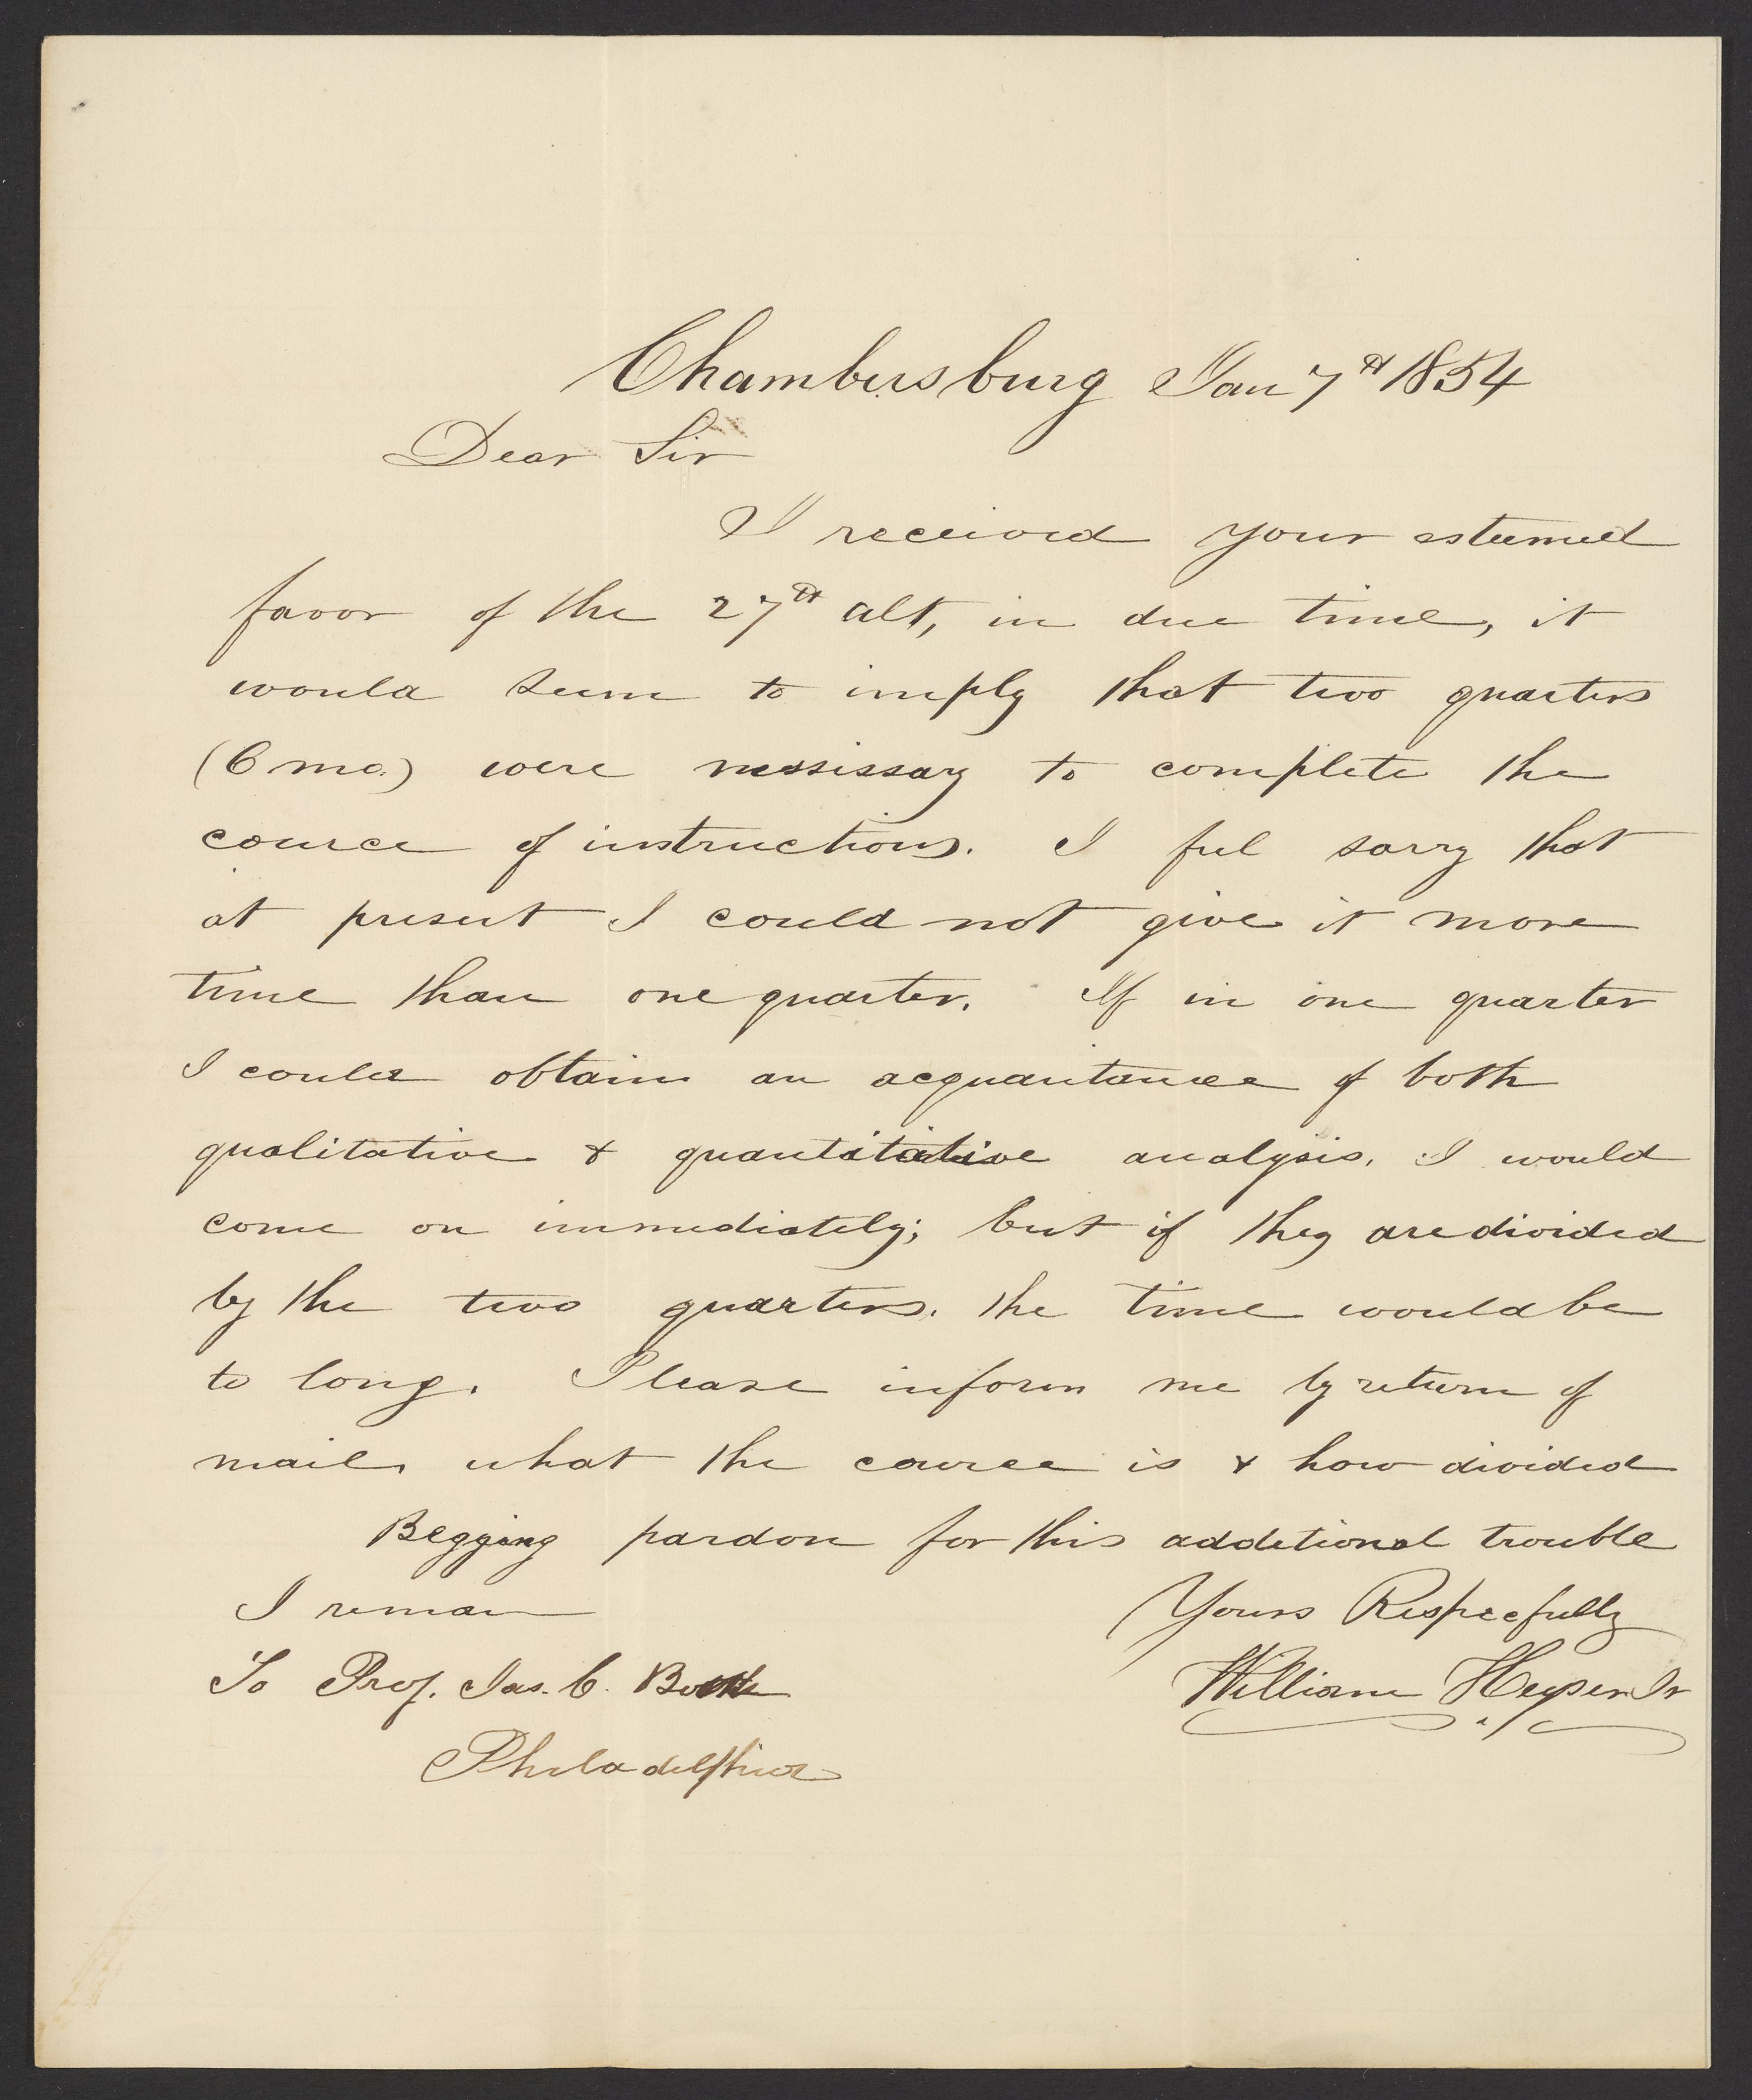 Chambersburg Jan 7th 1854
Dear Sir
I received your esteemed
favor of the 27th alt, in due time, it
would seem to imply that two quarters
(6 mo.) were nessissary to complete the
cource of instructions. I feel sorry that
at present I could not give it more
time than one quarter. If in one quarter
I could obtain an acquantance of both
qualitative & quantitative analysis, I would
come on immediately; but if they are divided
by the two quarters, the time would be
to long. Please inform me by return of
mail, what the cource is & how divided
Begging pardon for this additional trouble
I remain
Yours Respecfully
To Prof. Jas. C. Booth
William Heyser Jr
Philadelphia